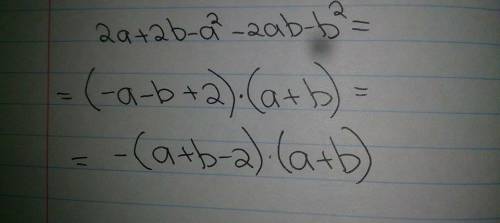 2a+2b-a²-2ab-b²=
=(-a-b+2)·(a+b)=
=-(a+b-2)·(a+b)